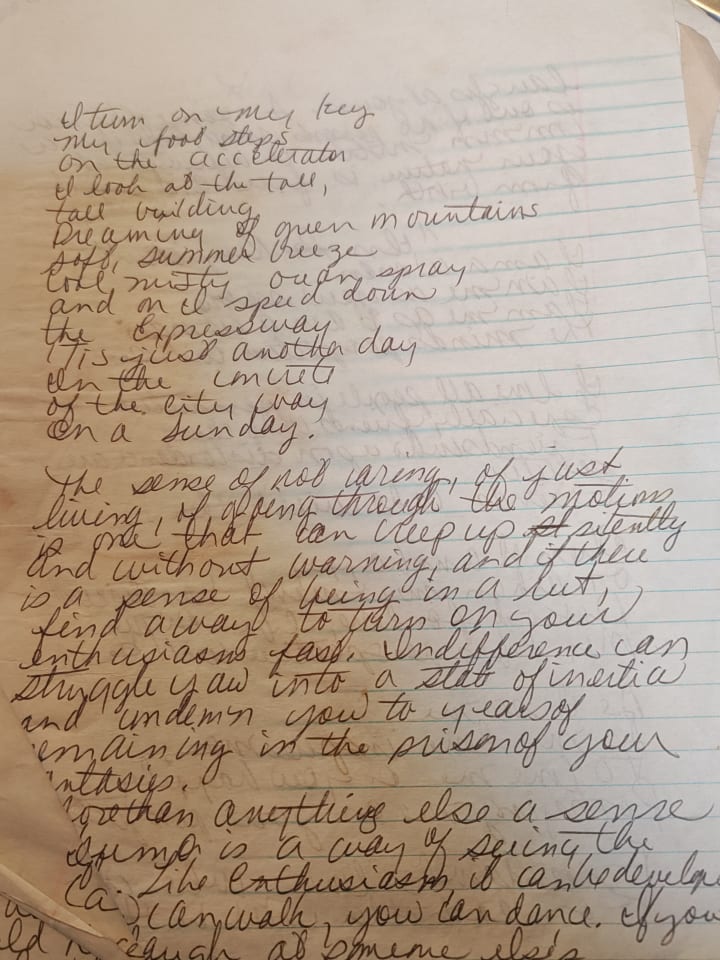 I turn on my key
my foot steps
on the accelerator
I look at the tall,
tall building
Dreaming of green mountains
soft, summer breeze
cool, misty ocean spray
and on I speed down
the Expressway
'Tis just another day
in the concrete
of the city way
On a Sunday.
The sense of not caring, of just
living, of going through the motions
is one that can creep up silently
and without warning, and if there
is a sense of being in a rut,
find a way to turn on your
enthusiasm fast. Indifference can
struggle you into a state of inertia
and condemn you to years of
remaining in the prison of your
fantasies.
More than anything else a sense
humor is a way of seeing the
Like Enthusiasm, it can be develope
can walk, you can dance. If you
laugh at someone else's